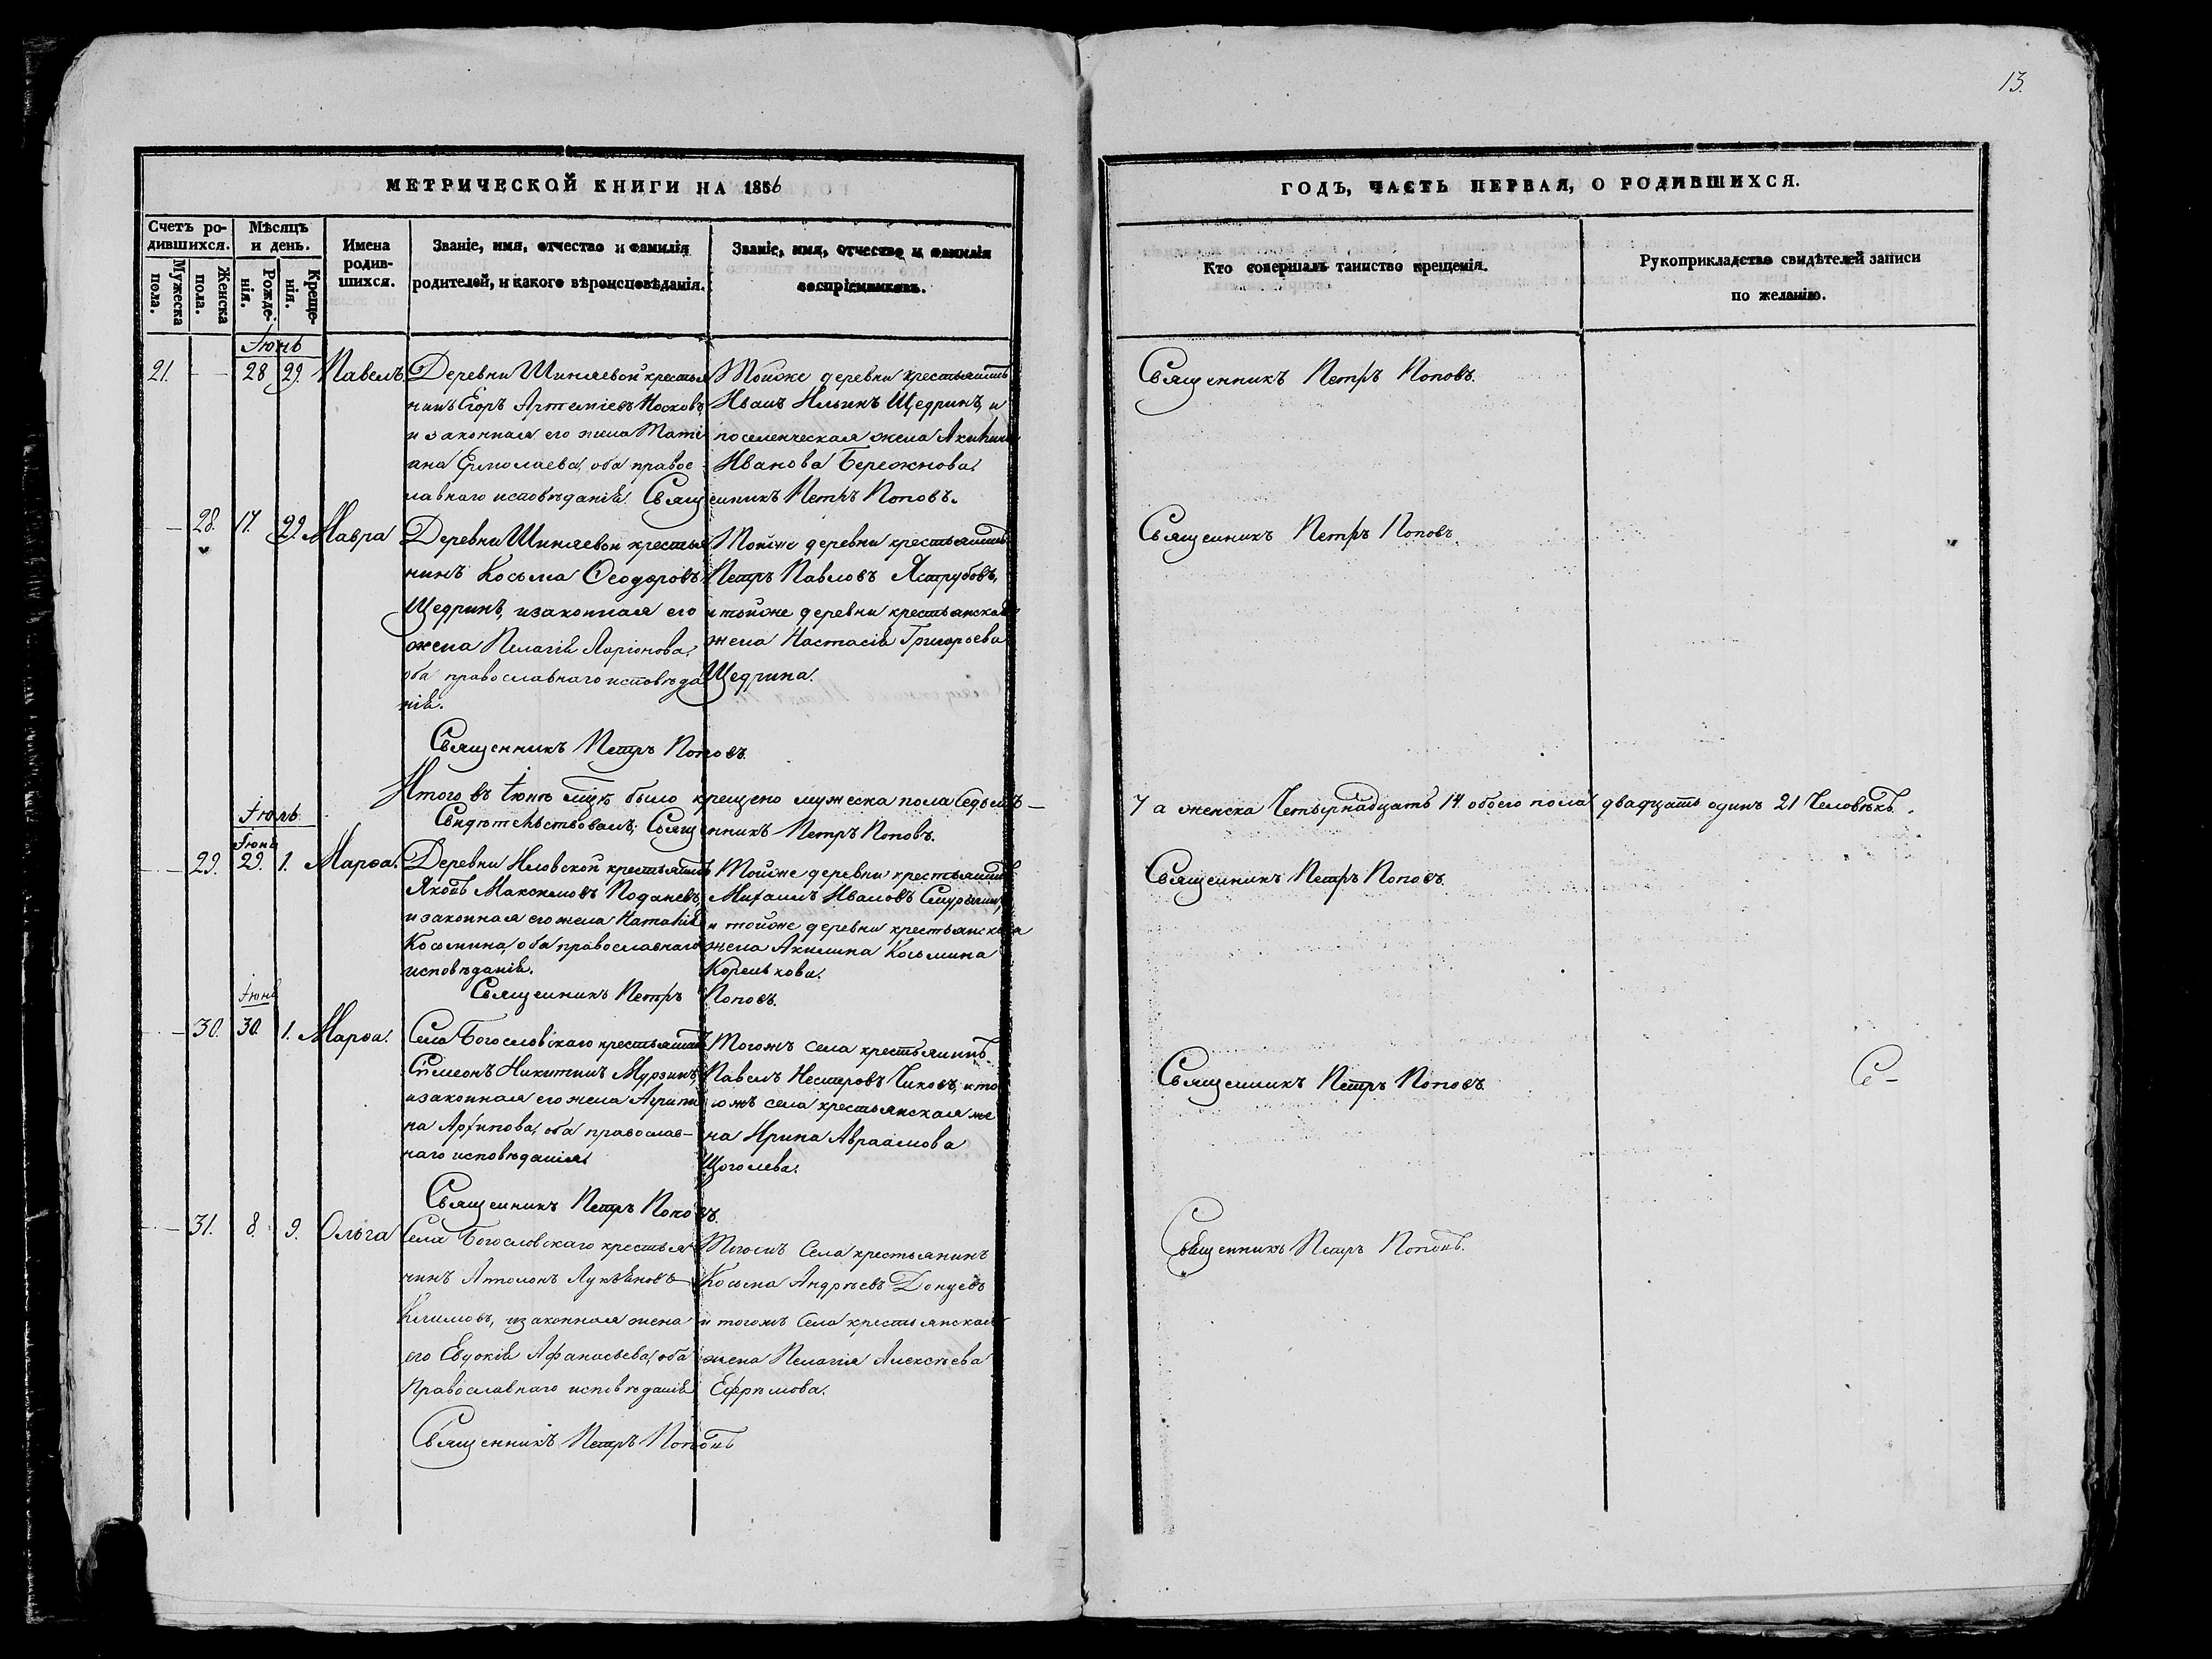 13.
МЕТРИЧЕСКОЙ КНИГИ НА 1856
ГОДЪ, ЧАСТЬ ПЕРВАЯ, О РОДИВШИХСЯ.
Счетъ ро-
дившихся.
Мужеска
пола.
Женска
пола.
Мѣсяцъ
и день.
Рожде-
нія.
Креще-
нія.
Имена
родив-
шихся.
Званіе, имя, отчество и фамилія
родителей, и какого вѣроисповѣданія.
Званіе, имя, отчество и фамилія
воспріемниковъ.
Кто совершалъ таинство крещенія.
Рукоприкладство свидѣтелей записи
по желанію.
Іюнь
21. 28 29. Павелъ.
Деревни Шиняевой крестья
нинъ Егоръ Артеміевъ Носковъ,
и законная его жена Таті
ана Ермолаева, оба правос
лавнаго исповѣданія.
Тойже деревни крестьянинъ
Иванъ Ильинъ Щедринъ, и
поселенческая жена Акилина
Иванова Бережнова.
Священникъ Петръ Поповъ.
Священникъ Петръ Поповъ.
28. 17. 29. Мавра
Деревни Шиняевой крестья
нинъ Косьма Ѳеодоровъ
Щедринъ, и законная его
жена Пелагія Ларіонова,
оба православнаго исповѣда
нія.
Тойже деревни крестьянинъ
Петръ Павловъ Яструбовъ,
и тойже деревни крестьянская
жена Настасія Григорьева
Щедрина.
Священникъ Петръ Поповъ.
Священникъ Петръ Поповъ.
Итого въ Іюнѣ мцѣ было крещено мужеска пола Седьмъ — 7 а женска Четырнадцать 14 обоего пола двадцать одинъ 21 Человѣкъ.
Свидѣтельствовалъ: Священникъ Петръ Поповъ.
Іюль
Іюнь
29. 29. 1. Марѳа.
Деревни Иловской крестьянинъ
Яковъ Максимовъ Поданевъ,
и законная его жена Наталія
Космина, оба православнаго
исповѣданія.
Тойже деревни крестьянинъ
Михаилъ Ивановъ
и тойже деревни крестьянская
жена Акилина Косьмина
Корелькова.
Священникъ Петръ Поповъ.
Священникъ Петръ Поповъ.
Іюнь
30. 30. 1. Марѳа.
Села Богословскаго крестьянинъ
Сѵмеонъ Никитинъ Мурзинъ,
и законная его жена Агрипи
на Архипова, оба православ-
наго исповѣданія.
Тогожъ села крестьянинъ
Павелъ Нестеровъ Чиковъ, и то
гожъ села крестьянская же
на Ирина Авраамова
Щоголева.
Священникъ Петръ Поповъ.
Священникъ Петръ Поповъ.
31. 8. 9. Ольга
Села Богословскаго крестья
нинъ Антонъ Лукьяновъ
Климовъ, и законная жена
его Евдокія Афанасьева, оба
Православнаго исповѣданія
Тогожъ Села крестьянинъ
Косьма Андрѣевъ Донцевъ
и тогожъ Села крестьянская
жена Пелагія Алексѣева
Ефримова.
Священникъ Петръ Поповъ
Священникъ Петръ Поповъ.